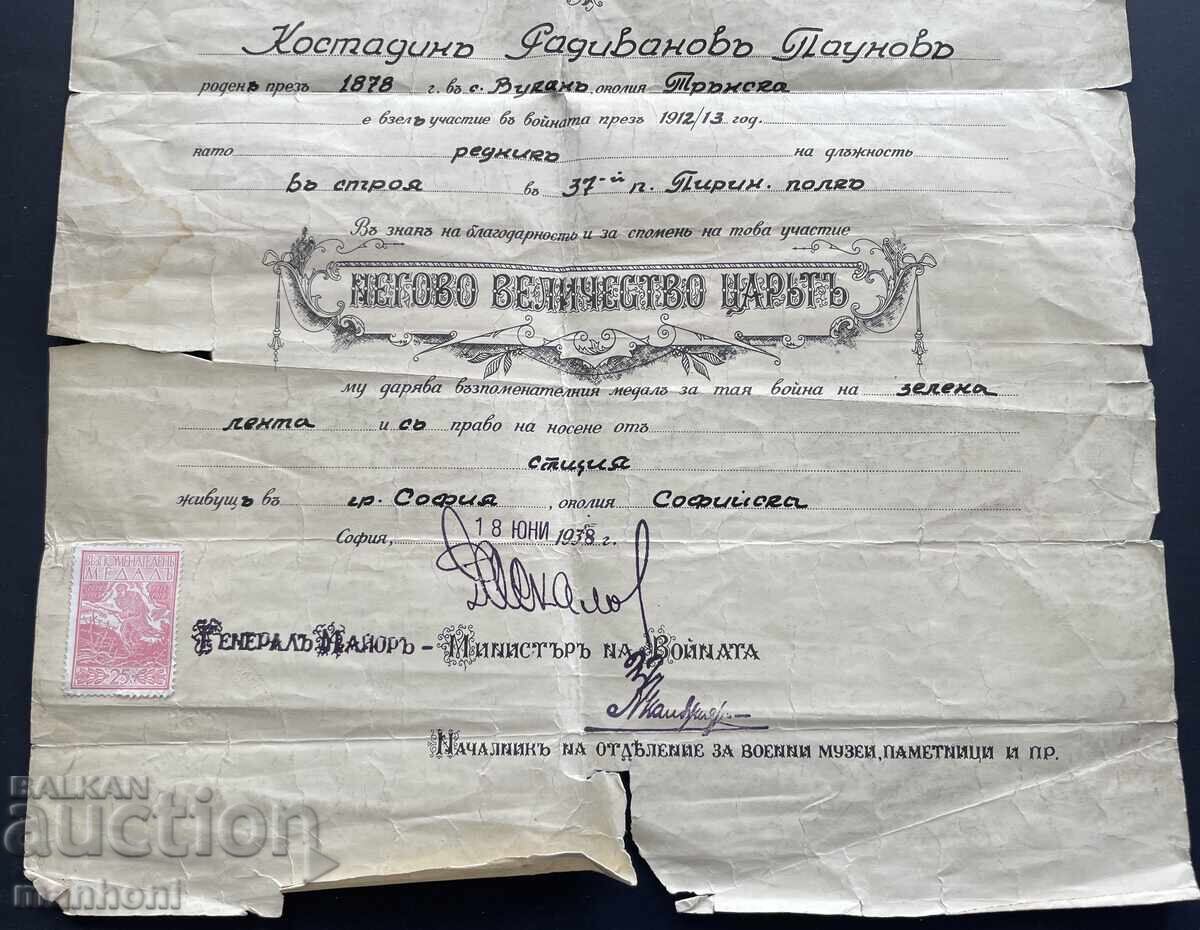 Костадинъ Радивановъ Пауновъ
роденъ презъ 1878 г. въ с. Вуканъ околия Трънска
е взелъ участие въ войната презъ 1912/13 год.
като редникъ на длъжность
въ строя въ 37-й п. Пирин. полкъ
Въ знакъ на благодарность и за споменъ на това участие
НЕГОВО ВЕЛИЧЕСТВО ЦАРЬТЪ
му дарява възпоменателния медалъ за тая война на зелена
лента и съ право на носене отъ
стция
живущъ въ гр. София, околия Софийска
София, 18 ЮНИ 1938 г.
ВЪЗПОМЕНАТЕЛЕНЪ
МЕДАЛЪ
25
ГЕНЕРАЛЪ МАЙОРЪ - МИНИСТЪРЪ НА ВОЙНАТА
НАЧАЛНИКЪ НА ОТДѢЛЕНИЕ ЗА ВОЕННИ МУЗЕИ, ПАМЕТНИЦИ И ПР.
BALKAN
auction
manhoni